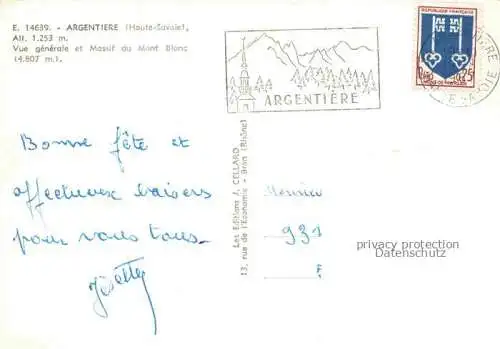 E. 14639. - ARGENTIERE (Haute-Savoie),
Alt. 1.253 m.
Vue générale et Massif du Mont Blanc
(4.807 m.).
ARGENTIÈRE
REPUBLIQUE FRANÇAISE
0,25
Bonne fête et
affectueux baisers
pour vous tous.
Josette
Les Editions J. CELLARD
13, rue de l'Economie - Bron (Rhône)
Monsieur
931
privacy protection
Datenschutz